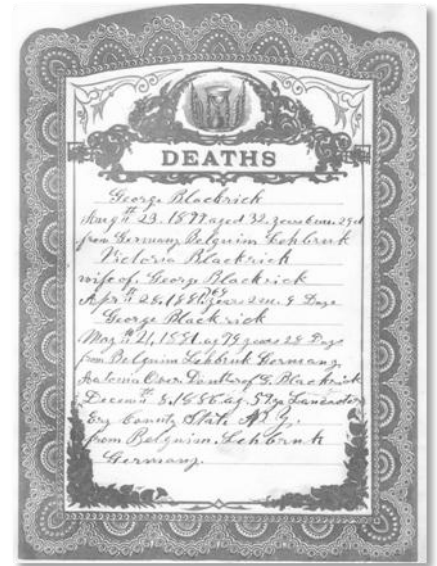 DEATHS
George Blackrick
Aug tt 23. 1877 aged 32. years 6 m. 29 d
from Germany Belguim Lehbruk
Victoria Blackrick
wife of. George Blackrick
Apr tt 28, 1881. years 2 m. 9 Days
George Blackrick
May tt 21, 1881. ag 79 years 28 Days
from Belguim Lehbruk Germany.
Daughter of G. Blackrick
Decem tt 8. 1886. ag. 57 y Lancaster
Ery County State N.Y.
from Belguim. Lehbruk
Germany.